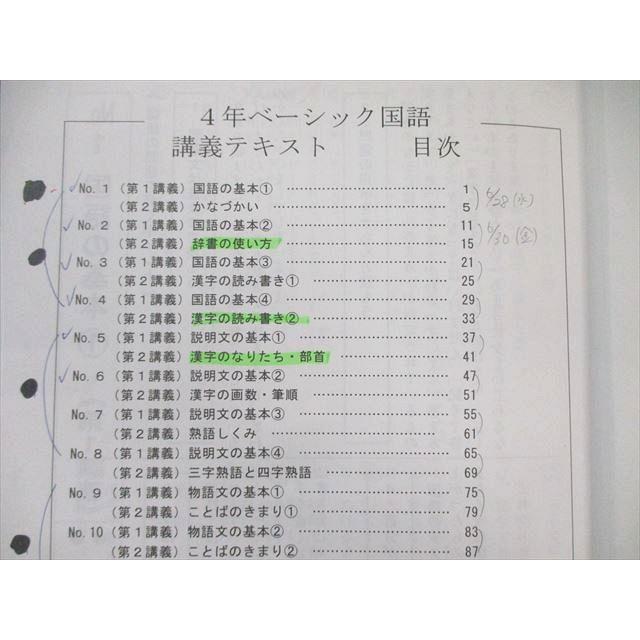 4年ベーシック国語
講義テキスト 目次
No. 1 (第1講義) 国語の基本① 1
(第2講義) かなづかい 5
No. 2 (第1講義) 国語の基本② 11
(第2講義) 辞書の使い方 15
No. 3 (第1講義) 国語の基本③ 21
(第2講義) 漢字の読み書き① 25
No. 4 (第1講義) 国語の基本④ 29
(第2講義) 漢字の読み書き② 33
No. 5 (第1講義) 説明文の基本① 37
(第2講義) 漢字のなりたち・部首 41
No. 6 (第1講義) 説明文の基本② 47
(第2講義) 漢字の画数・筆順 51
No. 7 (第1講義) 説明文の基本③ 55
(第2講義) 熟語しくみ 61
No. 8 (第1講義) 説明文の基本④ 65
(第2講義) 三字熟語と四字熟語 69
No. 9 (第1講義) 物語文の基本① 75
(第2講義) ことばのきまり① 79
No. 10 (第1講義) 物語文の基本② 83
(第2講義) ことばのきまり② 87